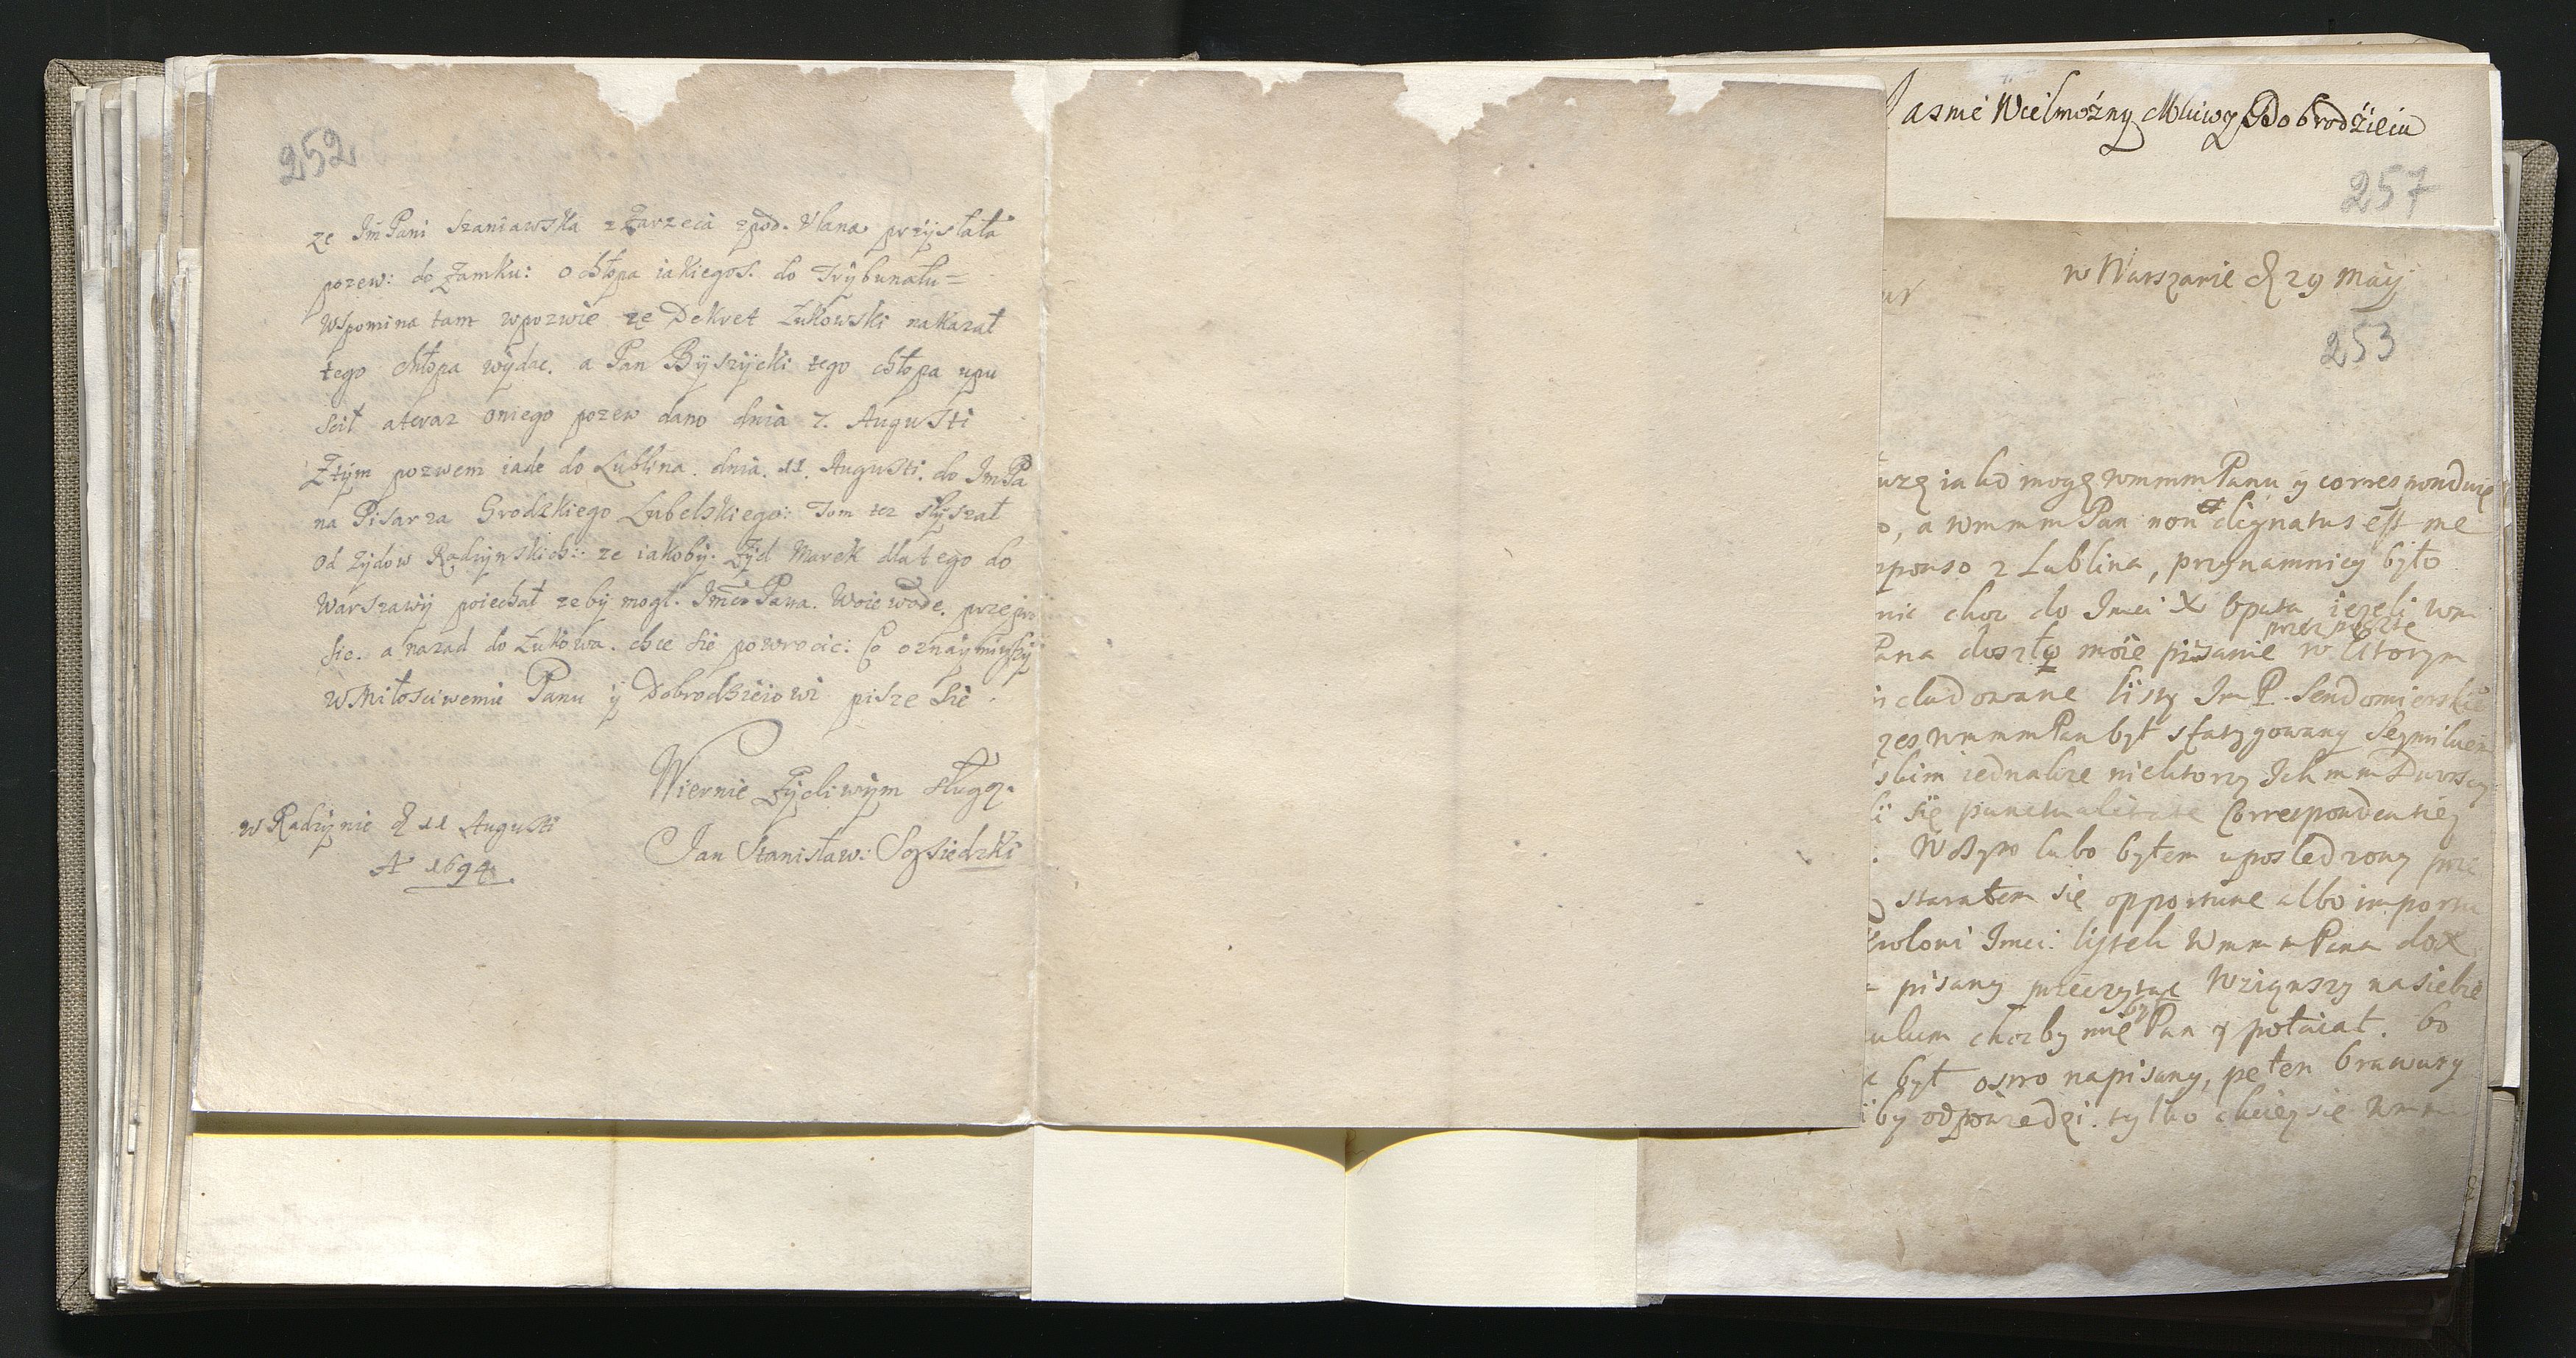 252
ze Jm̃ Pani Szaniawska z Zarzecia zpod. Ulana przysłała
pozew: do Zamku: o chłopa iakiegos. do Trybunału=
Wspomina tam wpozwie ze Dekret Łukowski nakazał
tego chłopa wydac. a Pan Byszycki tego chłopa upu
scił ateraz oniego pozew dano dnia 7. Augusti
Ztym pozwem iade do Lublina. dnia. 11. Augusti. do Jm Pa
na Pisarza Grodzkiego Lubelskiego: Tom tez słyszał
od Zydow Radzynskich: ze iakoby. Zyd Marek dlatego do
Warszawy poiechał zeby mogł. Jm̃ci Pana. Woiewode. przepro
sic. a nazad do Łukowa. chce sie powrocic: Co oznaymiwszy
WMiłosciwemu Panu y Dobrodzieiowi pisze sie.
Wiernie Zycliwym sługą.
w Radzynie d 11 Augusti
A 1694.
Jan Stanisław: Sąsiedzki
Jasnie Wielmożny Mściwy Dobrodźieiu
257
w Warszawie d 29 Maij
253
iako mogę wmmm Panu y corresponduię
o, a wmmm Pan non dignatus est me
sponso z Lublina, przynamniey było
nic choc do Jmci X Opata ieżeli wm
przez posztę
Pana doszło moie pisanie w ktorym
includowane listy Jm P. Sendomierskie
zes wmmm Pan był sfatygowany Seymikiem
skim iednakze niektorzy Ich mm
li się punctualitate Correspondentiey
. lubo byłem uposledzony prze
starałem się opportune albo importu
Krolowi Jmci: listek Wmmm Pana do X
pisany przeczytac Wziąwszy na siebie
by
ulum chocby mie Pan y połaiał. bo
był ostro napisany, pełen brawury
by odpowiedzi. tylko chciey sie Wmm